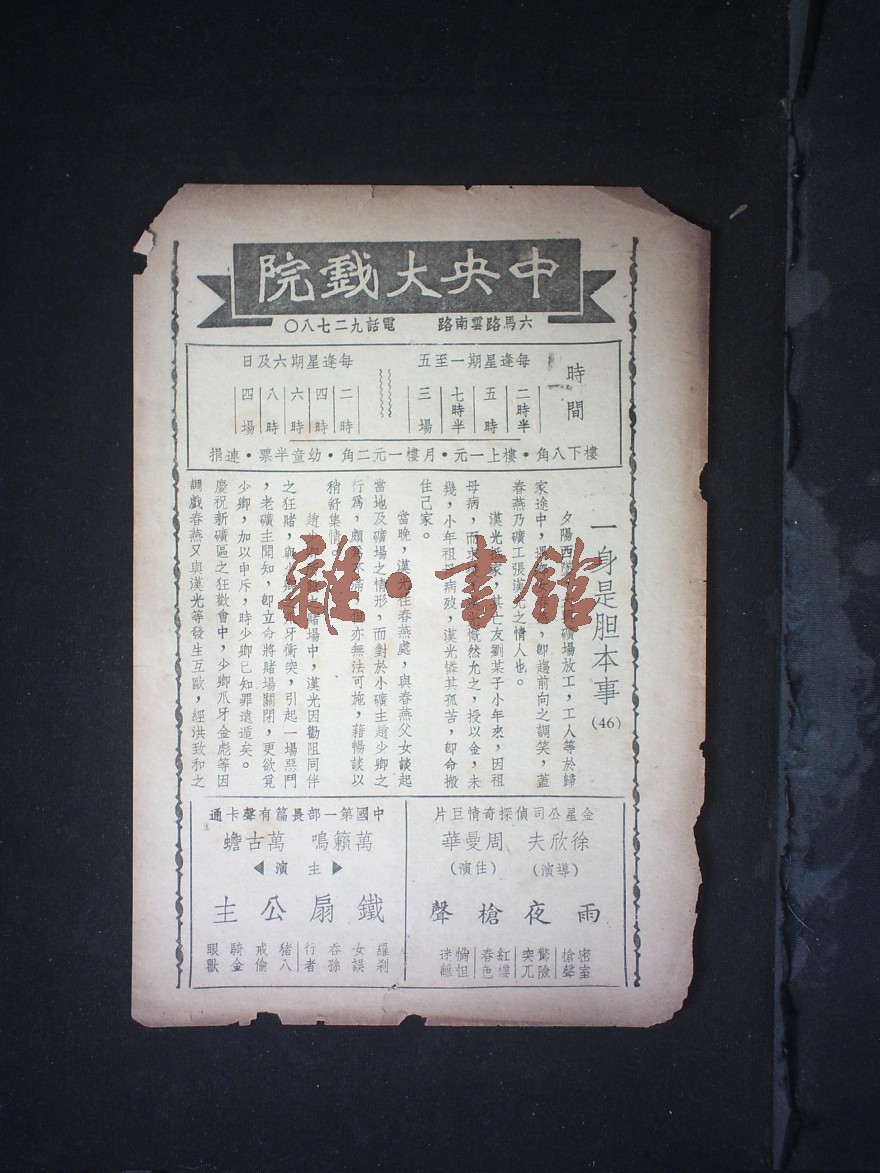 中央大戲院
六馬路雲南路 電話九二七八〇
時間
每逢星期一至五
二時半
五時
七時半
三場
每逢星期六及日
二時
四時
六時
八時
四場
樓下八角・樓上一元・月樓一元二角・幼童半票・連捐
一身是胆本事(46)
夕陽西 礦場放工,工人等於歸
家途中, 卽趨前向之調笑,蓋
春燕乃礦工張漢光之情人也。
漢光 其亡友劉某子小年來,因祖
母病,而求 慨然允之,授以金,未
幾,小年祖 病歿,漢光憐其孤苦,卽命搬
住己家。
當晚,漢光往春燕處,與春燕父女談起
當地及礦場之情形,而對於小礦主趙少卿之
行為,頗 不 但亦無法可施,藉暢談以
稍舒集情。
趙少 賭場中,漢光因勸阻同伴
之狂賭,與少 爪牙衝突,引起一場惡鬥
,老礦主聞知,卽立命將賭場關閉,更欲覓
少卿,加以申斥,時少卿已知罪遠遁矣。
慶祝新礦區之狂歡會中,少卿爪牙金彪等因
調戲春燕又與漢光等發生互毆,經洪致和之
金星公司偵探奇情巨片
徐欣夫 周曼華
(導演) (佳演)
雨夜槍聲
密室槍聲
驚險突兀
紅樓春色
惝怳迷離
中國第一部長篇有聲卡通
萬籟鳴 萬古蟾
▶主演◀
鐵扇公主
羅剎
女誤
吞孫
行者
猪八
戒偷
騎金
眼獸
雜・書館